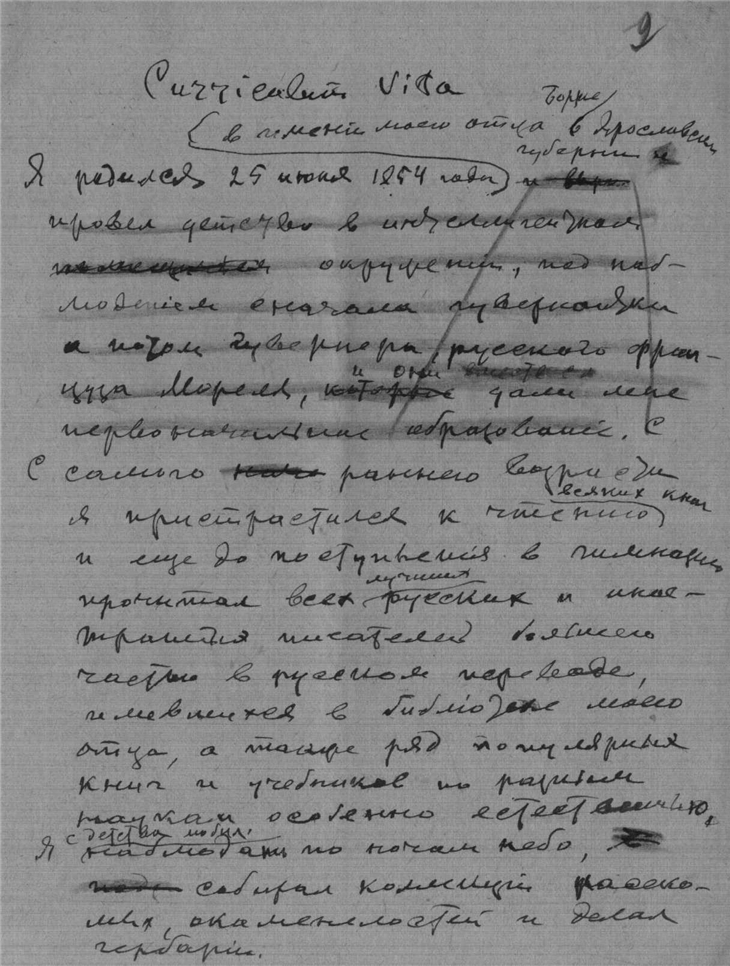 9
Curriculum Vita
(в имении моего отца Борке в Ярославской
губернии и
Я родился 25 июня 1854 года) и
провел детство в интеллигентном
помещичьем окружении, под наб-
людением сначала гувернантки
а потом гувернера, русского фран-
цуза Мореля, которые и они дали мне
первоначальное образование. С
С самого раннего возраста
я пристрастился к чтению всяких книг
и еще до поступления в гимназию
прочитал всех лучших русских и иност-
транных писателей большею
частью в русском переводе,
имевшихся в библиотеке моего
отца, а также ряд популярных
книг и учебников по разным
наукам особенно естественным,
Я с детства любил
наблюдать по ночам небо,
собирал коллекции насеко-
мых, окаменелостей и делал
гербарии.